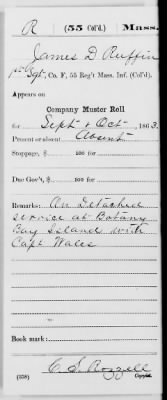 R (55 Col'd.) Mass.
James D Ruffin
1st Sgt, Co. F, 55 Reg't Mass. Inf. (Col'd).
Appears on
Company Muster Roll
for Sept & Oct, 1863.
Present or absent Absent
Stoppage, $ 100 for
Due Gov't, $ 100 for
Remarks: On Detached
service at Botany
Bay Island with
Capt Wales
Book mark:
C. S. Rozzell
(358) Copyist.